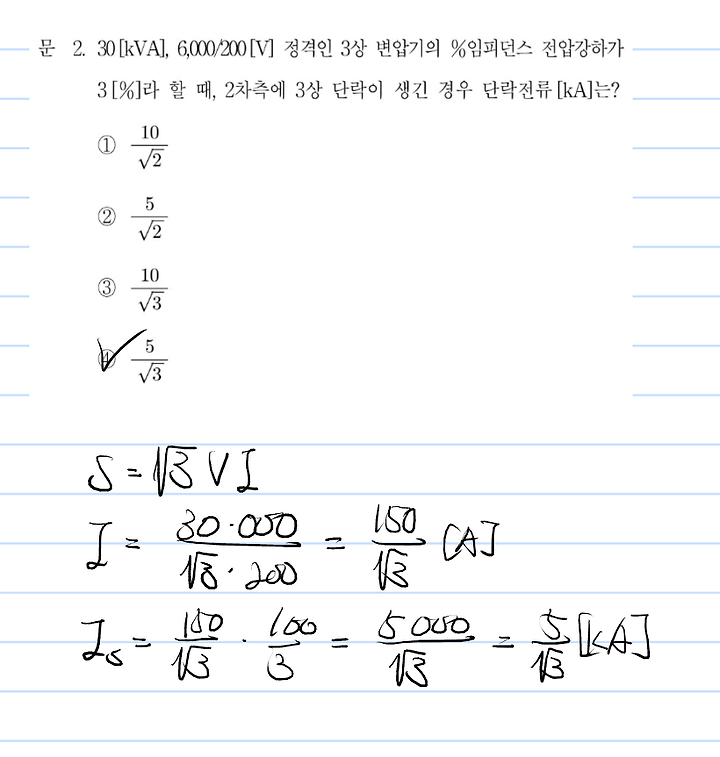 문 2. 30[kVA], 6,000/200[V] 정격인 3상 변압기의 %임피던스 전압강하가
3[%]라 할 때, 2차측에 3상 단락이 생긴 경우 단락전류[kA]는?
① 10/√2
② 5/√2
③ 10/√3
④ 5/√3
S = √3 V I
I = 30·000/√3·200 = 150/√3 [A]
Is = 150/√3 · 100/3 = 5000/√3 = 5/√3 [kA]